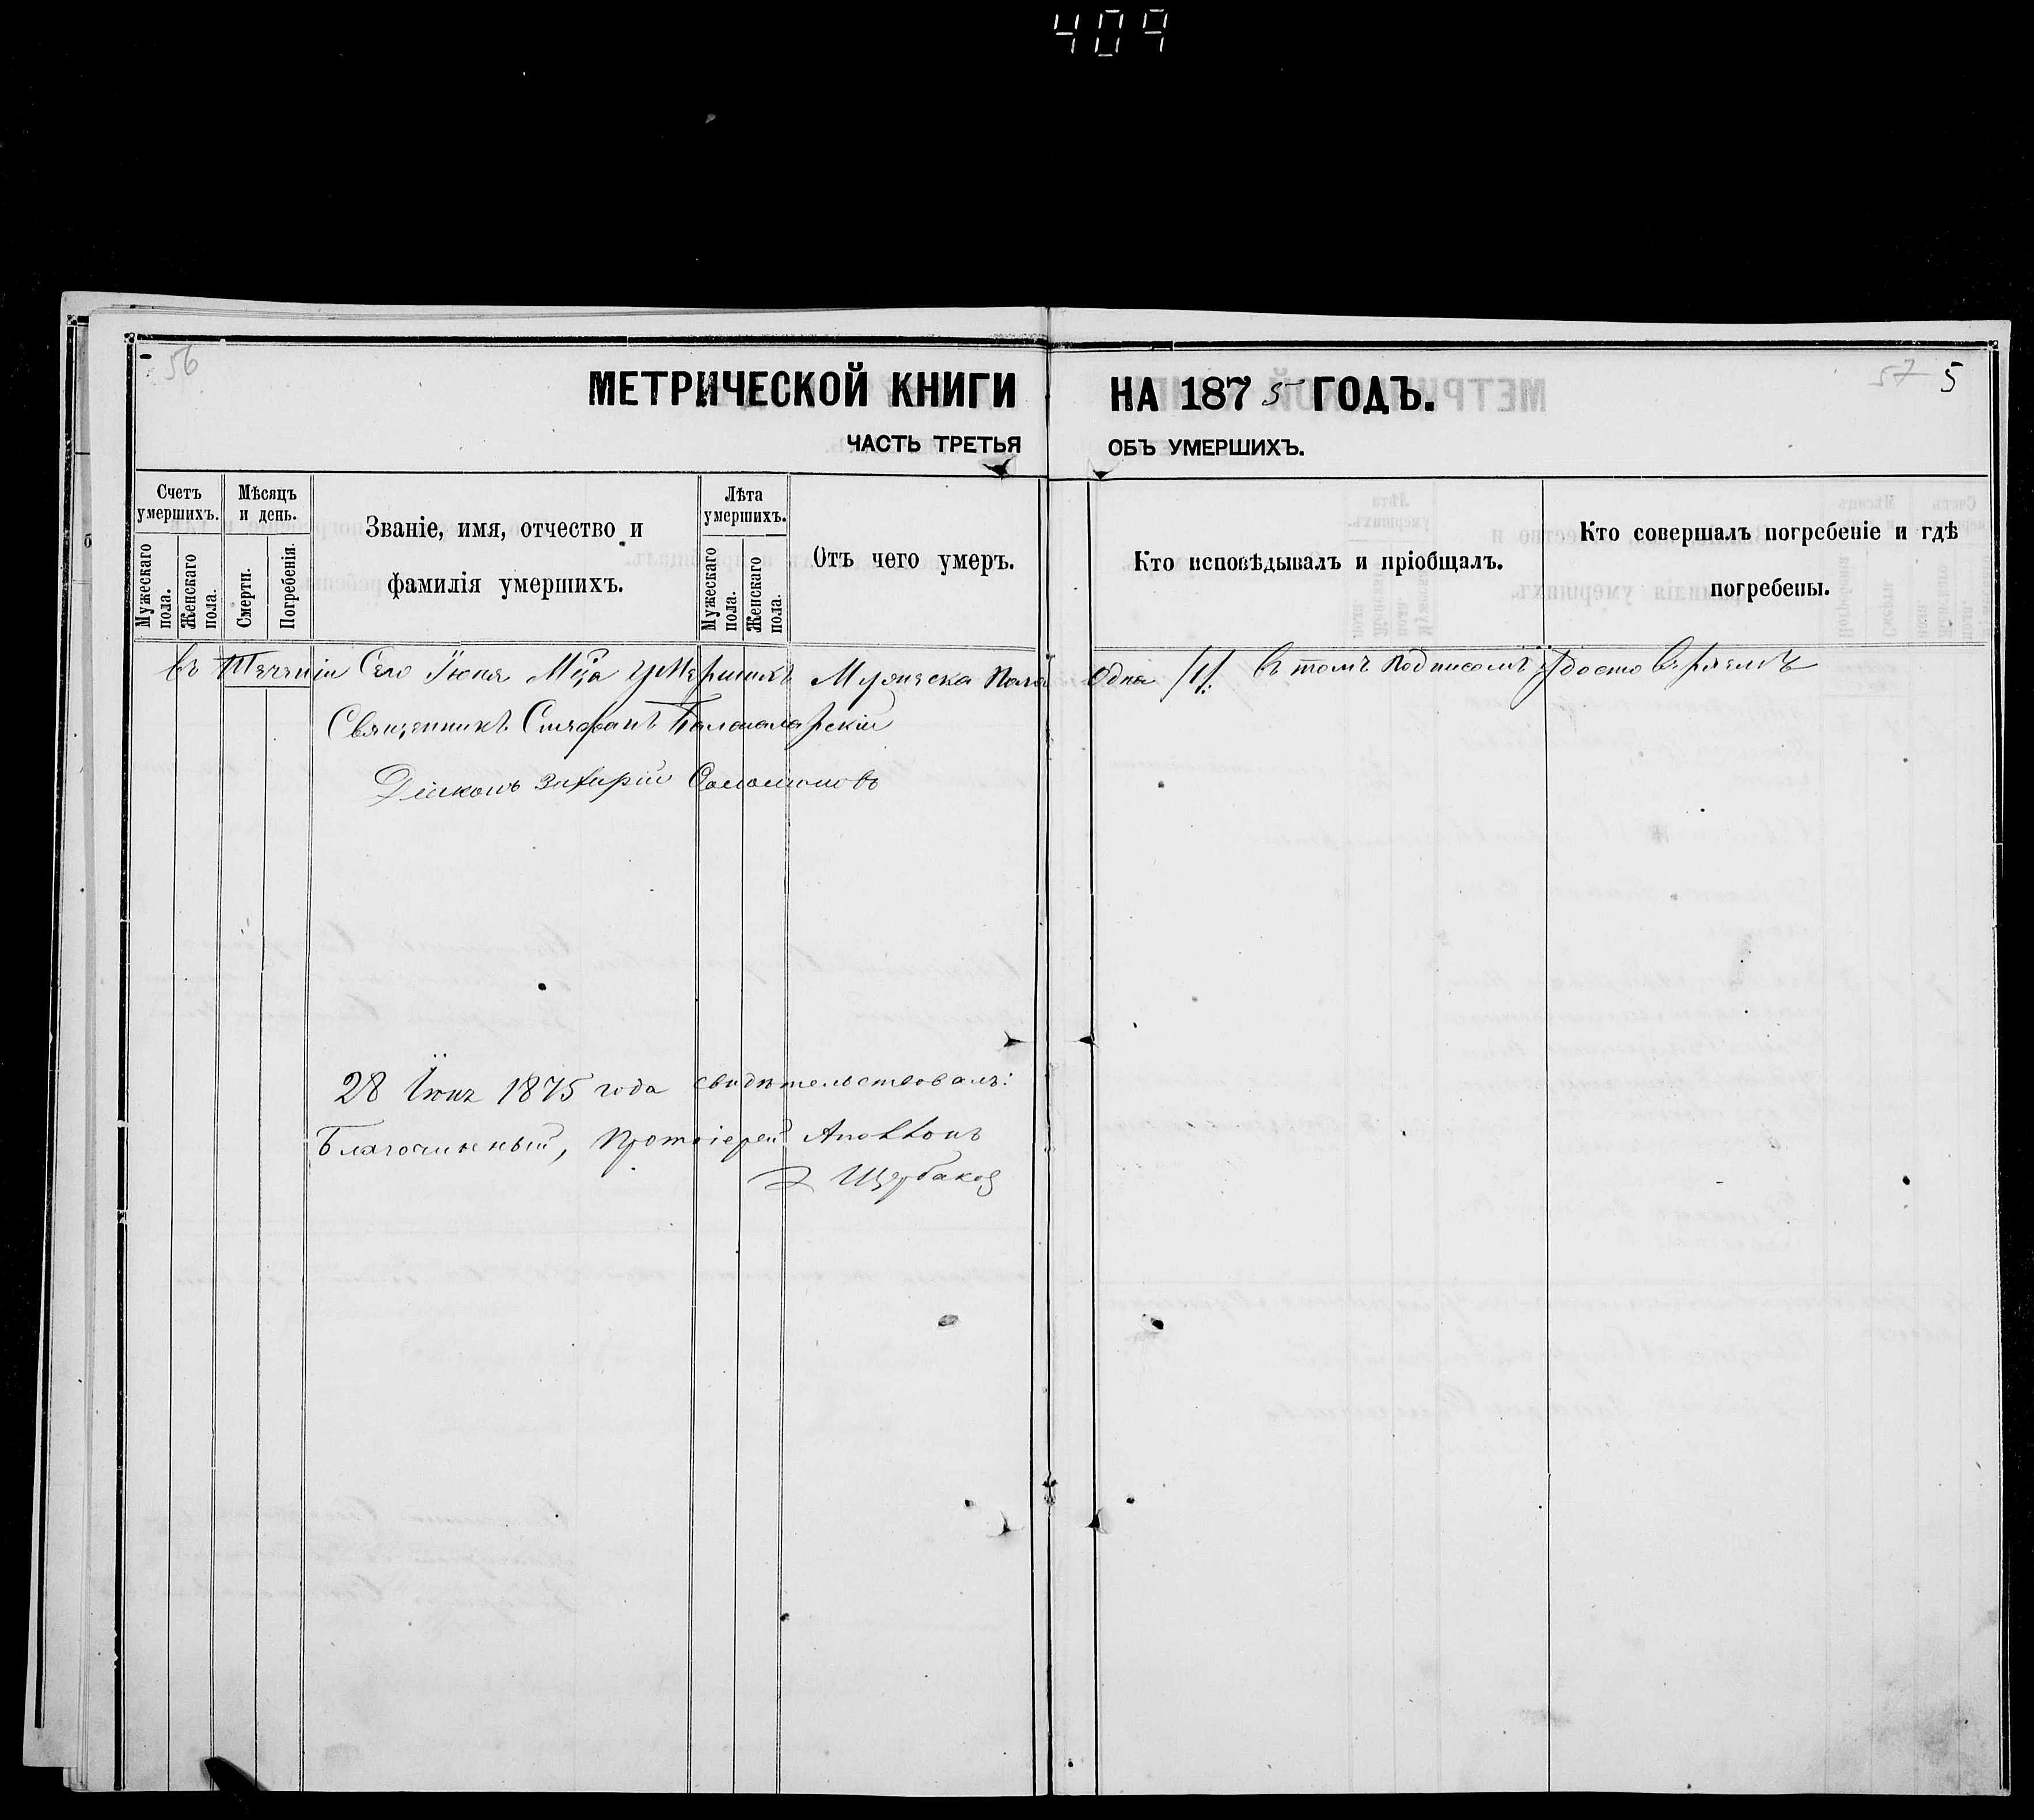 409
56
57 5
МЕТРИЧЕСКОЙ КНИГИ НА 1875 ГОДЪ.
ЧАСТЬ ТРЕТЬЯ ОБЪ УМЕРШИХЪ.
Счетъ умершихъ.
Мужескаго пола.
Женскаго пола.
Мѣсяцъ и день.
Смерти.
Погребенія.
Званіе, имя, отчество и
фамилія умершихъ.
Лѣта умершихъ.
Мужескаго пола.
Женскаго пола.
Отъ чего умеръ.
Кто исповѣдывалъ и пріобщалъ.
Кто совершалъ погребеніе и гдѣ
погребены.
Въ Теченіи Сего Іюня Мца умершихъ Мужеска Пола Одна /1/. В томъ подписомъ удостоверяемъ
Священникъ Стефанъ
Діаконъ Захарій Соломоновъ
28 Іюня 1875 года свидѣтельствовалъ:
Благочинный, Протоіерей Аполлонъ
Щербаков